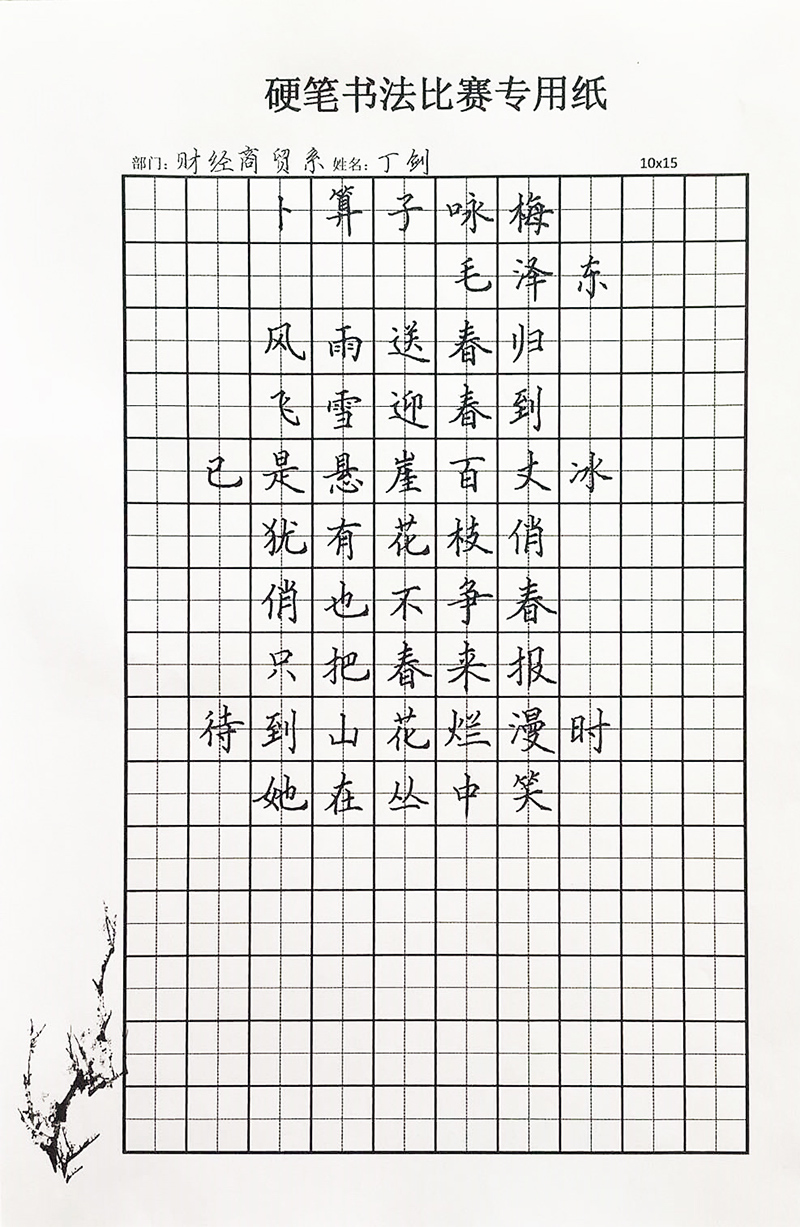 硬笔书法比赛专用纸
部门：财经商贸系 姓名：丁剑 10x15
卜算子咏梅
毛泽东
风雨送春归
飞雪迎春到
已是悬崖百丈冰
犹有花枝俏
俏也不争春
只把春来报
待到山花烂漫时
她在丛中笑